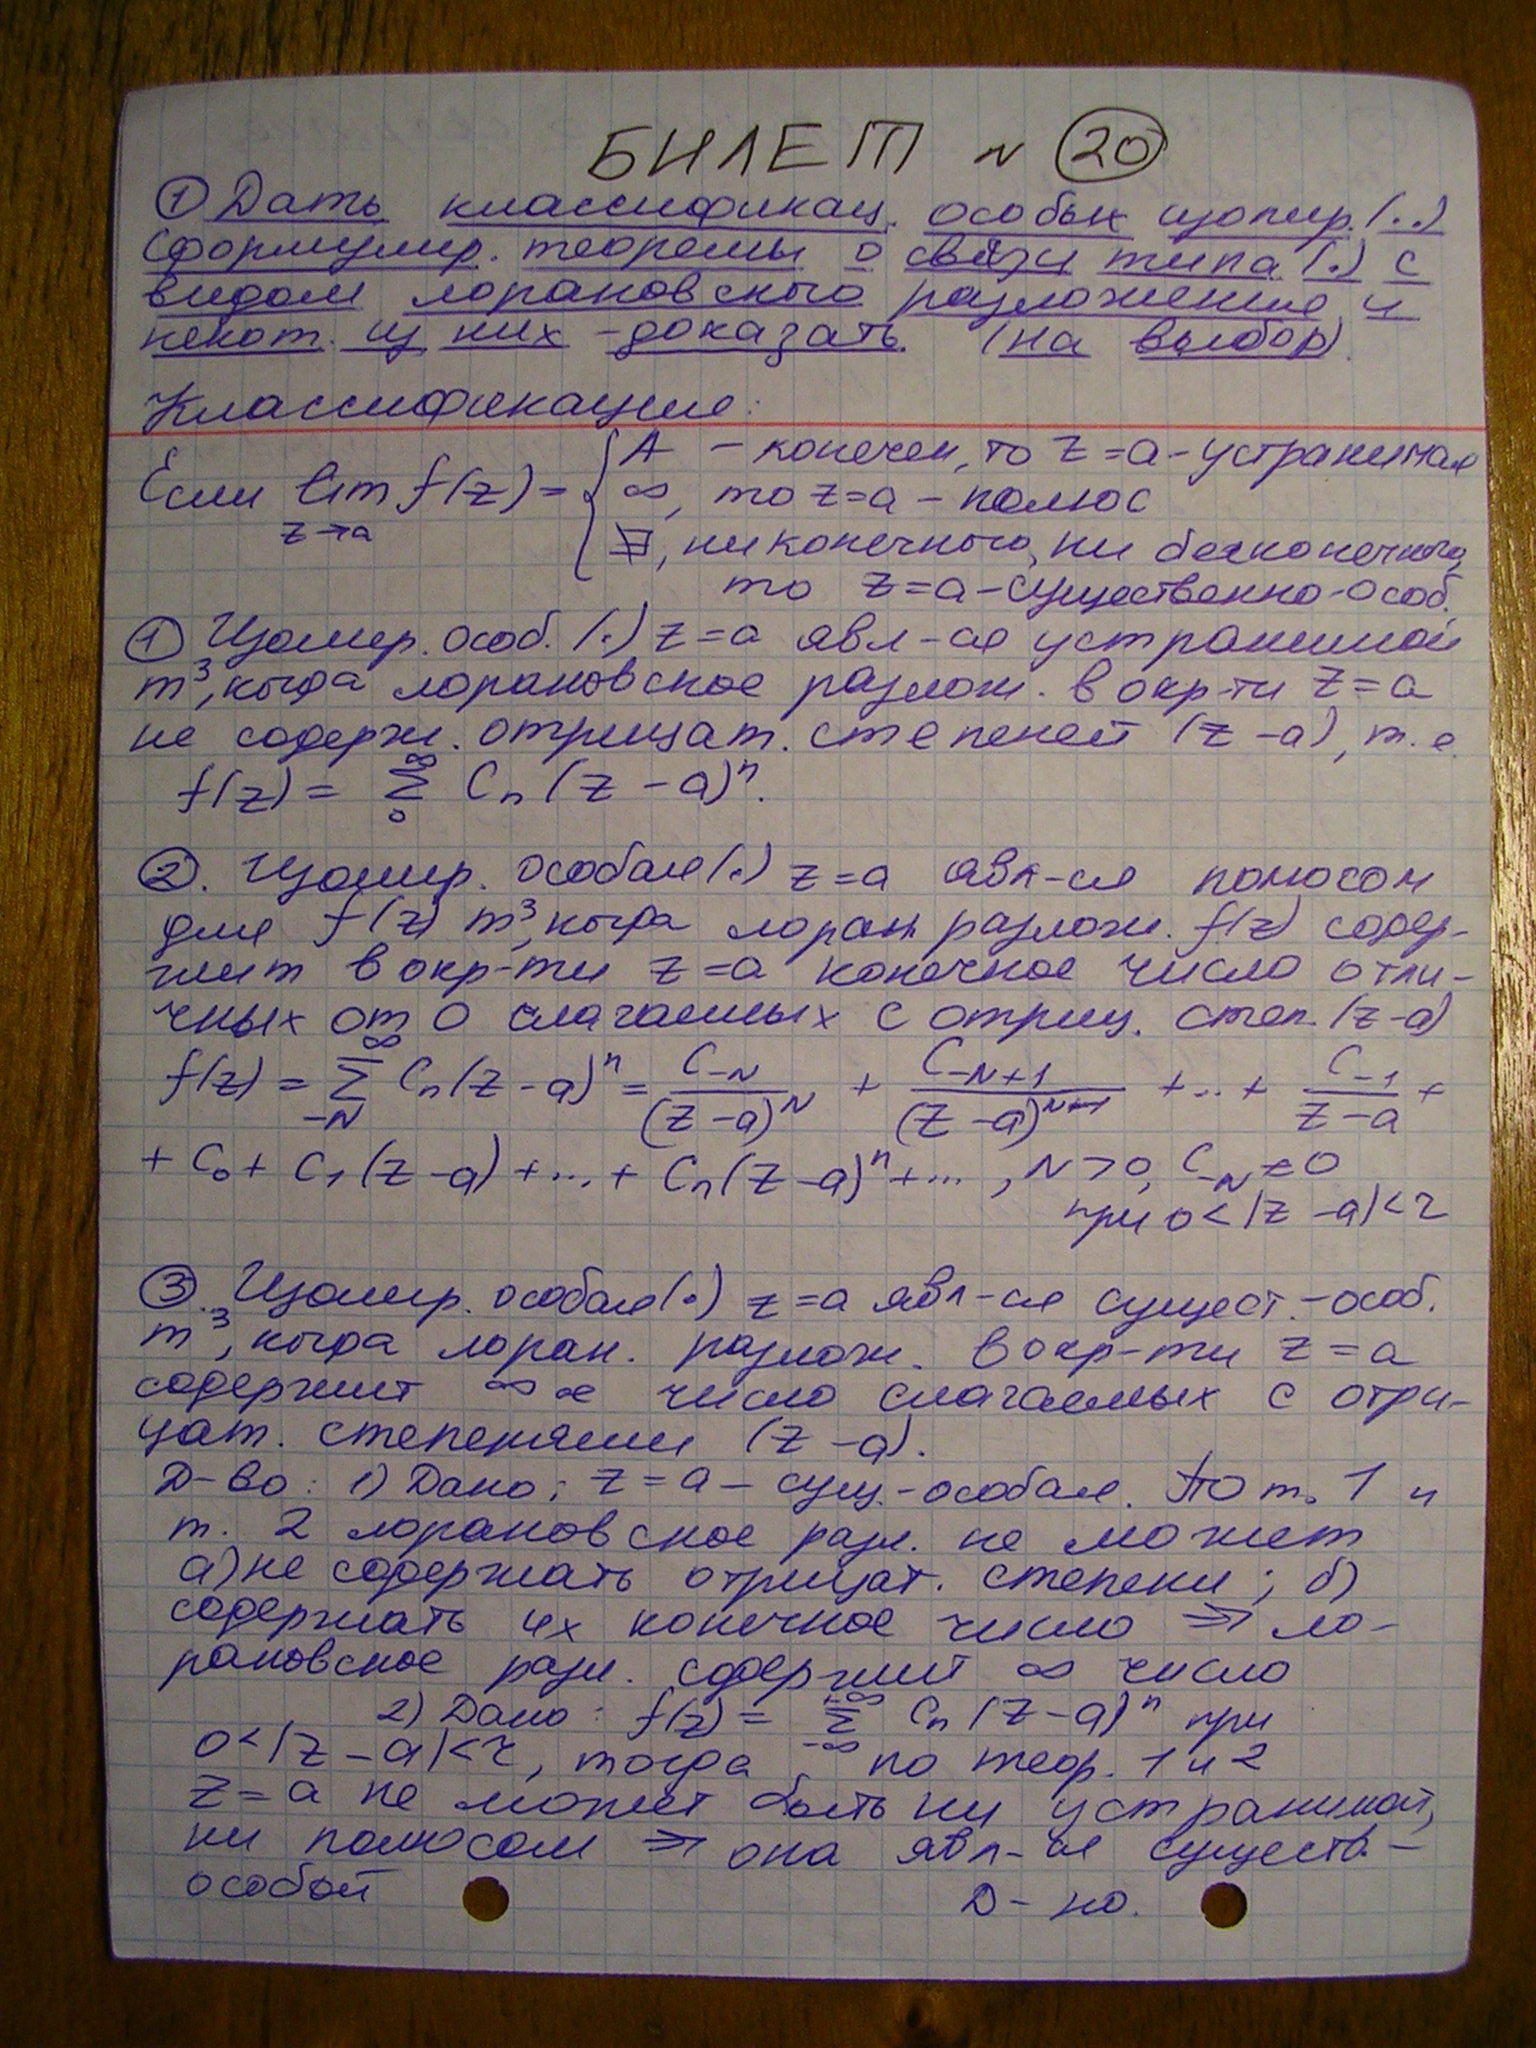 БИЛЕТ N 20
① Дать классификац. особых изолир. (..)
сформулир. теоремы о связи типа (.) с
видом лорановского разложения и
некот. из них - доказать (на выбор).
Классификация:
Если lim f(z) = { A – конечен, то z=a – устранимая
z→a
∞, то z=a – полюс
∄, ни конечного, ни бесконечного,
то z=a – существенно-особ.
① Изолир. особ. (.) z=a явл-ся устранимой
т³, когда лорановское разлож. в окр-ти z=a
не содерж. отрицат. степеней (z-a), т.е.
f(z) = ∑₀^∞ Cₙ (z-a)ⁿ.
②. Изолир. особая (.) z=a явл-ся полюсом
для f(z) т³, когда лоран. разлож. f(z) содер-
жит в окр-ти z=a конечное число отли-
чных от 0 слагаемых с отриц. степ. (z-a)
f(z) = ∑_{-N}^∞ Cₙ(z-a)ⁿ = C_{-N}/(z-a)^N + C_{-N+1}/(z-a)^{N-1} + ... + C_{-1}/(z-a) +
+ C₀ + C₁(z-a) + ... + Cₙ(z-a)ⁿ + ... , N>0, C_{-N} ≠ 0
при 0<|z-a|<r
③. Изолир. особая (.) z=a явл-ся сущест.-особ.
т³, когда лоран. разлож. в окр-ти z=a
содержит ∞ое число слагаемых с отри-
цат. степенями (z-a).
Д-во: 1) Дано: z=a – сущ.-особая. По т. 1 и
т. 2 лорановское разл. не может
а) не содержать отрицат. степени; б)
содержать их конечное число ⇒ ло-
рановское разл. содержит ∞ число
2) Дано: f(z) = ∑_{-∞}^{+∞} Cₙ (z-a)ⁿ при
0<|z-a|<r, тогда по теор. 1 и 2
z=a не может быть ни устранимой,
ни полюсом ⇒ она явл-ся существ.-
особой
Д-но.